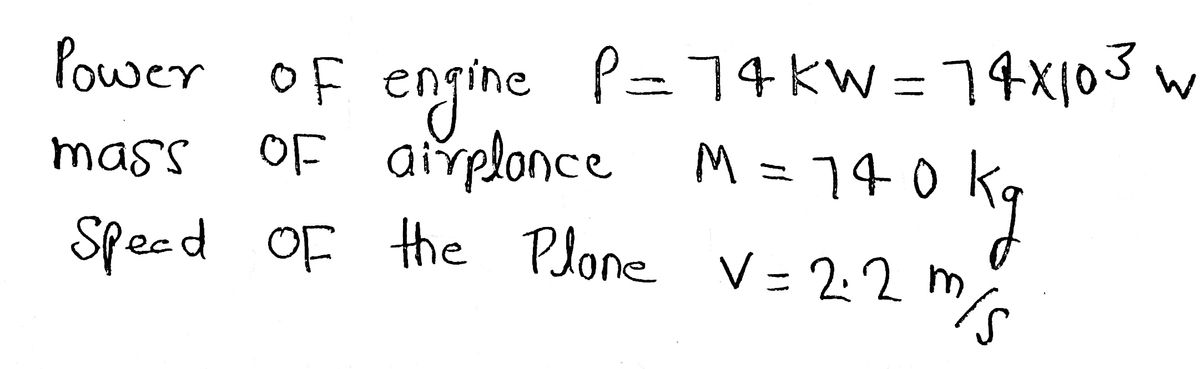 Power OF engine P = 74 KW = 74X10³ W
mass OF airplance M = 740 kg
Speed OF the Plane V = 2.2 m/s